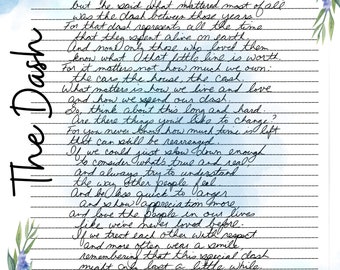 The Dash
but he said what mattered most of all
was the dash between those years
For that dash represents all the time
that they spent alive on earth,
And now only those who loved them
know what that little line is worth.
For it matters not how much we own:
the cars, the house, the cash.
What matters is how we live and love
and how we spend our dash.
So, think about this long and hard.
Are there things you'd like to change?
For you never know how much time is left
that can still be rearranged
If we could just slow down enough
to consider what's true and real
and always try to understand
the way other people feel
And be less quick to anger
and show appreciation more
and love the people in our lives
like we've never loved before.
If we treat each other with respect
and more often wear a smile,
remembering that this special dash
might only last a little while